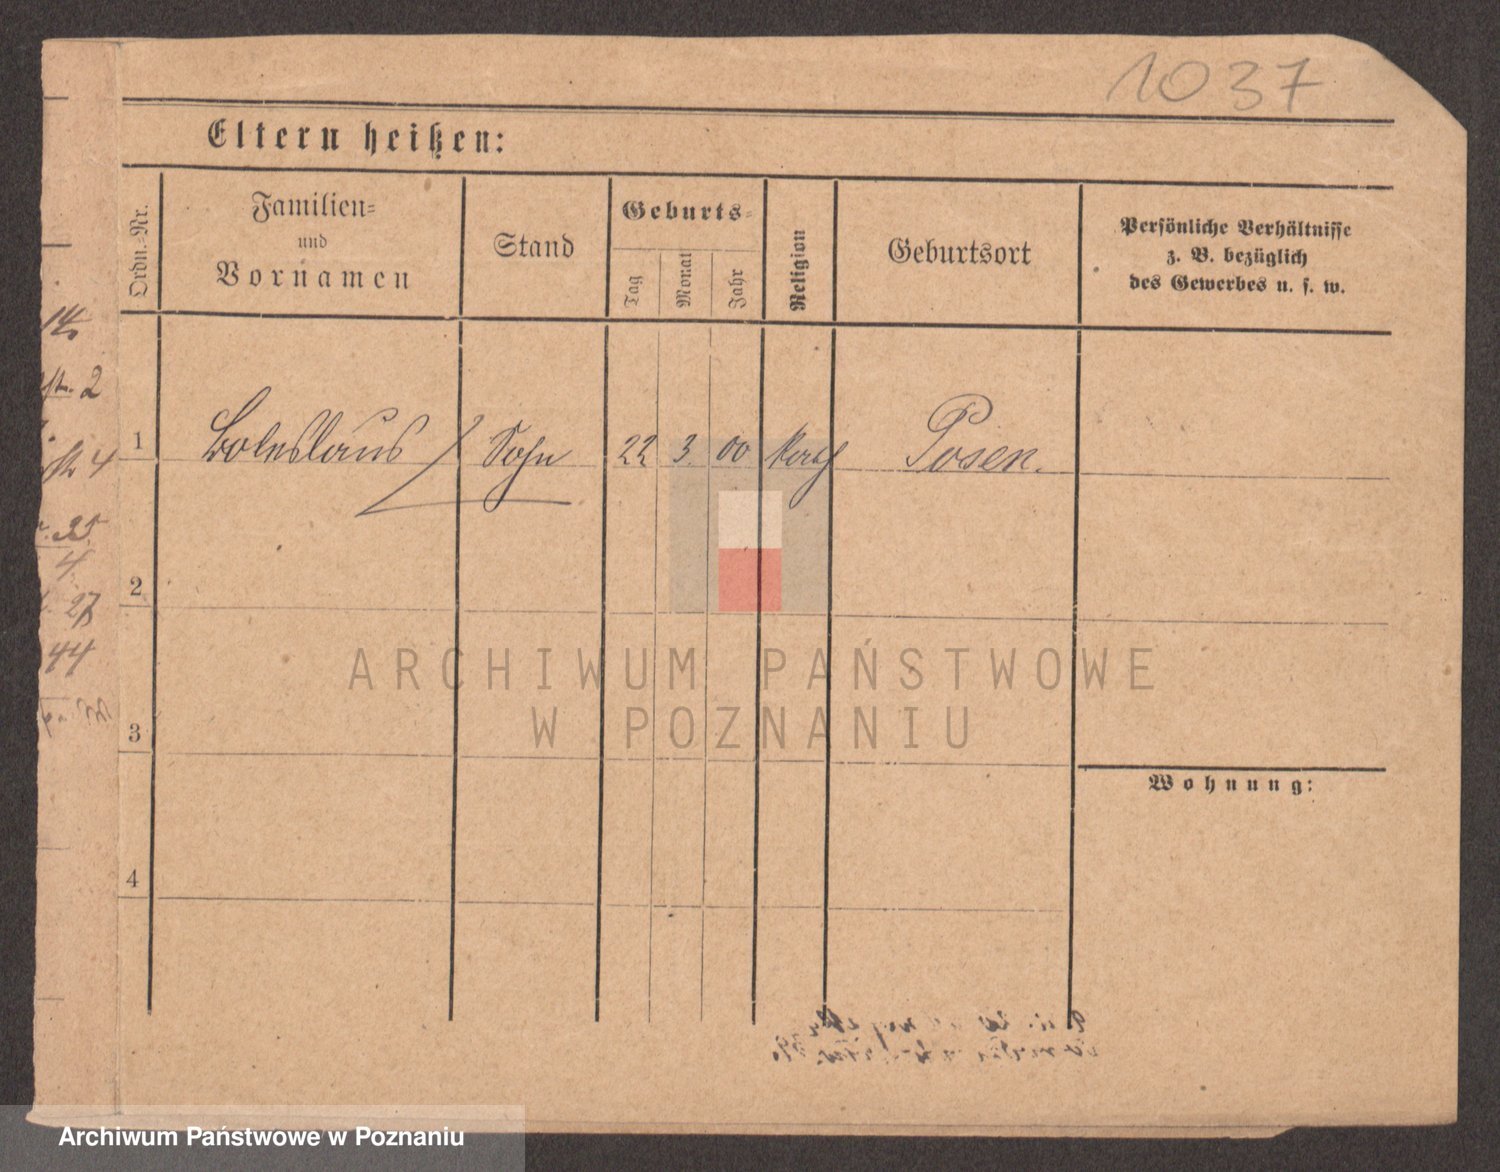 1037
Eltern heißen:
Ordn.-Nr.
Familien-
und
Vornamen
Stand
Geburts-
Tag
Monat
Jahr
Religion
Geburtsort
Persönliche Verhältnisse
z. B. bezüglich
des Gewerbes u. s. w.
14
2
4
1 Boleslaus Sohn 22 3. 00 Posen.
35
4
2
27
44
3
Wohnung:
4
ARCHIWUM PAŃSTWOWE
W POZNANIU
Archiwum Państwowe w Poznaniu